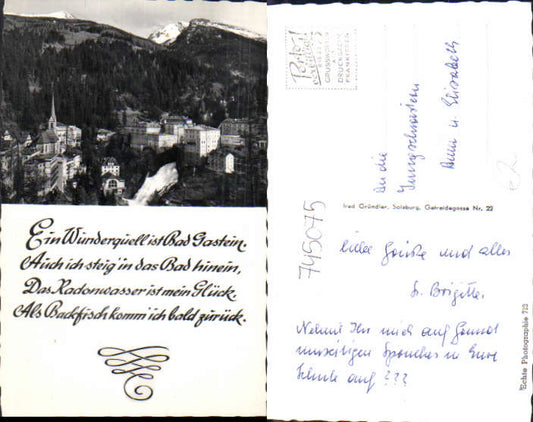 Ein Wunderquell ist Bad Gastein.
Auch ich steig' in das Bad hinein,
Das Radonwasser ist mein Glück,
Als Backfisch komm' ich bald zurück.
Porto
GRUSSKARTEN
DRUCKSACHE
FRANKIEREN
An die
Jungschwestern
Anni u. Elisabeth
€2
fred Gründler, Salzburg, Getreidegasse Nr. 22
745075
Liebe Grüße und alles
Brigitte.
Nehmt Ihr mich auf Grund
umseitigen Spruches in Eure
Schule auf ???
Echte Photographie 722